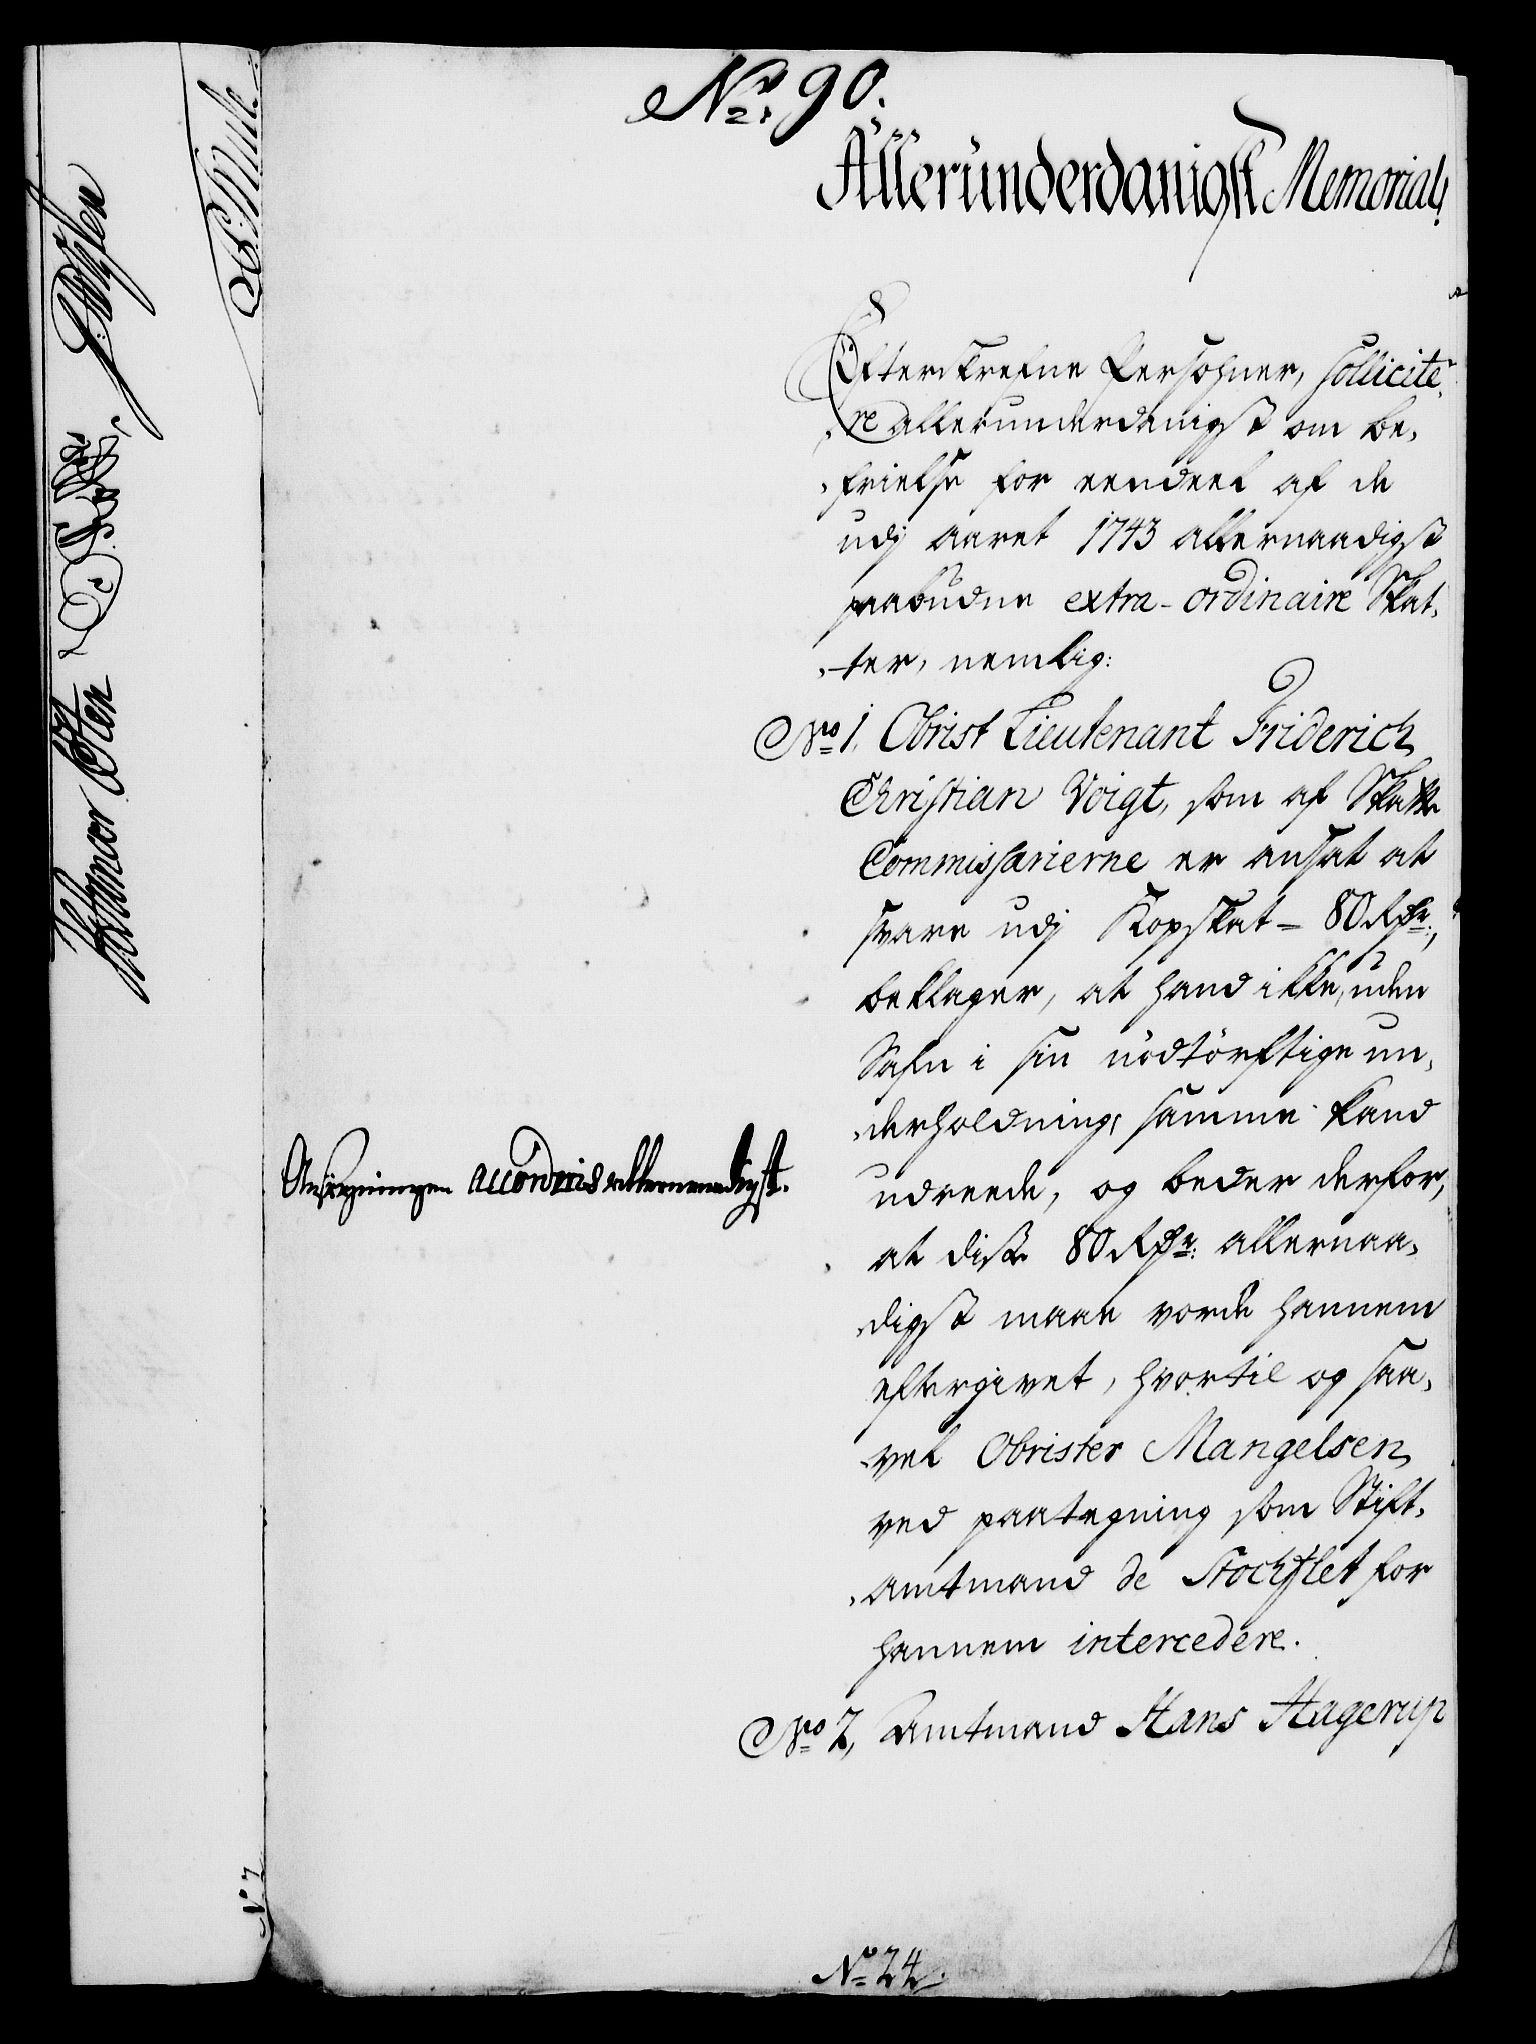 No. 90.
Alleründerdanigst Memorial,
Efterskrefne Persohner, sollicite-
re allerunderdanigst om be-
frielse for eendeel af de
udj aaret 1743 allernaadigst
paabudne extra-ordinaire Skat-
ter, nemlig:
No 1. Obrist Lieutenant Friderich
Christian Voigt, som af Skatte
Commissarierne er ansat at
svare udj Kopskat = 80 Rdr.,
beklager, at hand ikke, uden
Safn i sin nödtörftige un-
derholdning, samme kand
udreede, og beder derfor,
at diße 80 Rdr. allernaa-
digst maae vorde hannem
eftergivet, hvortil og saa-
vel Obrister Mangelsen
ved paategning som Stift-
amtmand de Stochflet for
hannem intercedere.
Ansögningen accorderis allernaadigst.
No 2, Amtmand Hans Hagerup
No 24.